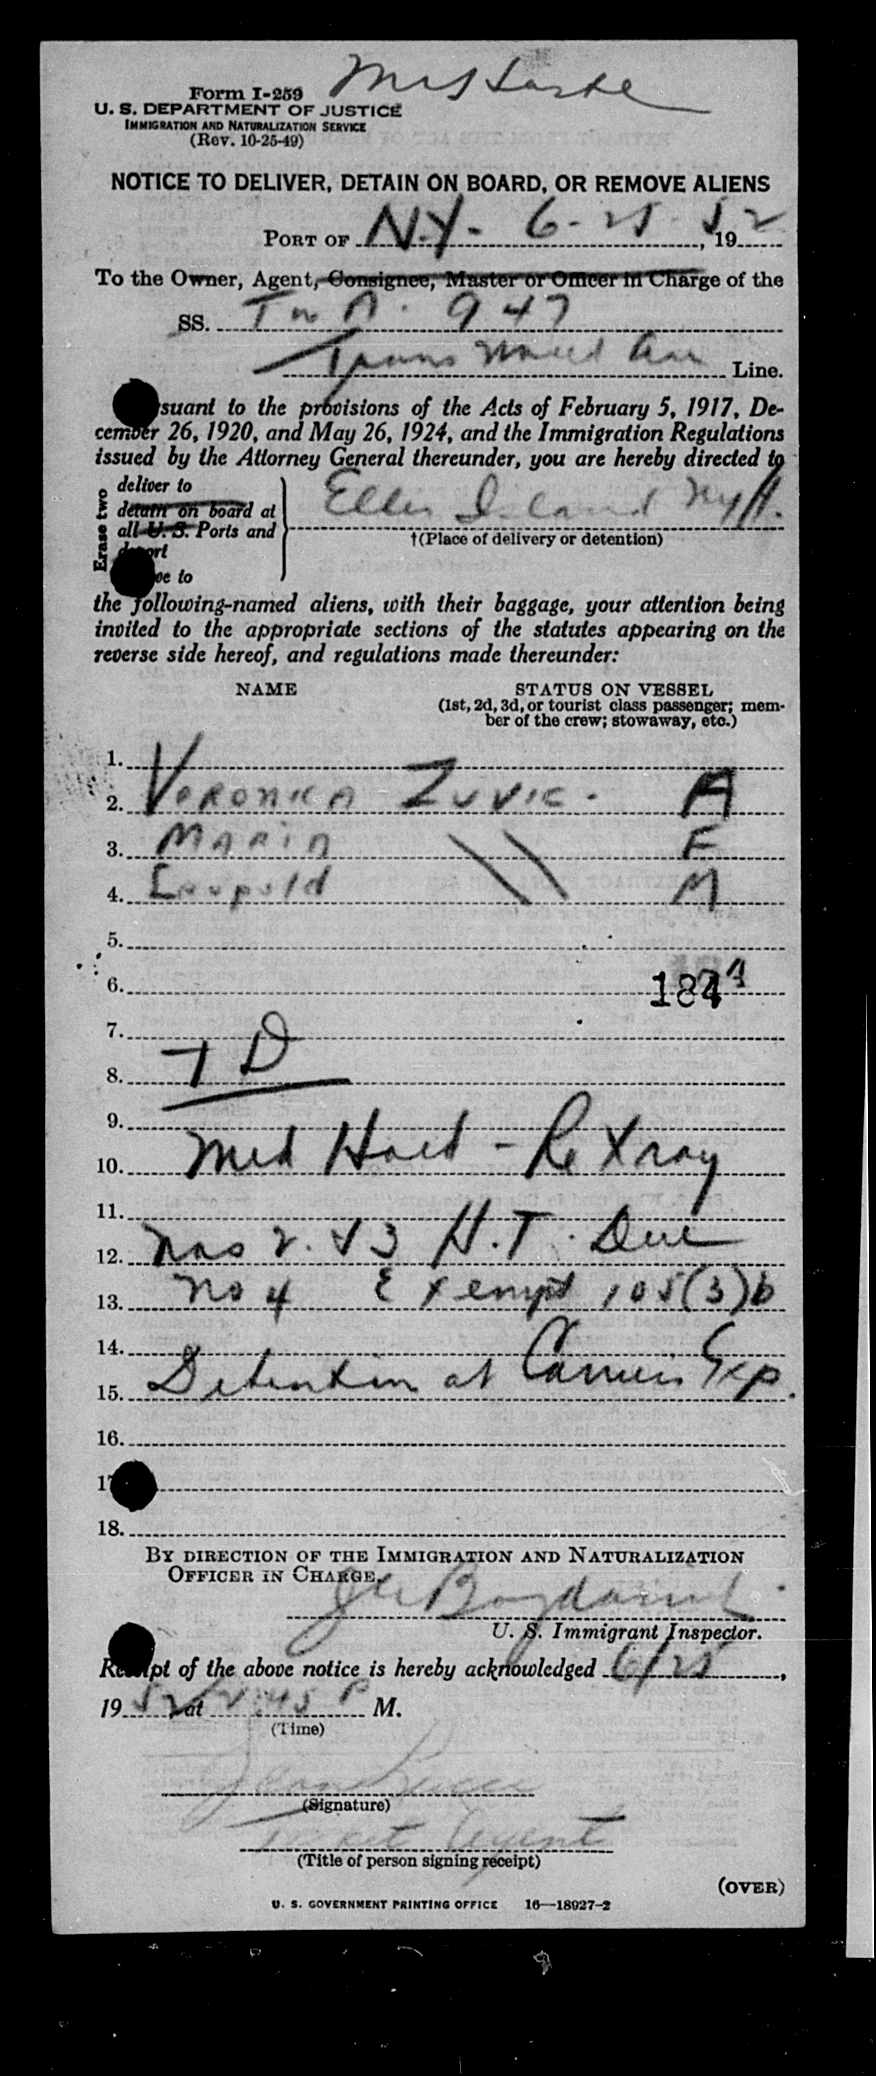 Form I-259
U. S. DEPARTMENT OF JUSTICE
IMMIGRATION AND NATURALIZATION SERVICE
(Rev. 10-25-49)
NOTICE TO DELIVER, DETAIN ON BOARD, OR REMOVE ALIENS
PORT OF N.Y. 6-25-52, 1952
To the Owner, Agent, Consignee, Master or Officer in Charge of the
SS. TWA. 947
Trans World Air Line.
suant to the provisions of the Acts of February 5, 1917, De-
cember 26, 1920, and May 26, 1924, and the Immigration Regulations
issued by the Attorney General thereunder, you are hereby directed to
Erase two
deliver to
detain on board at
all U. S. Ports and
port
ve to
Ellis Island NYH.
†(Place of delivery or detention)
the following-named aliens, with their baggage, your attention being
invited to the appropriate sections of the statutes appearing on the
reverse side hereof, and regulations made thereunder:
NAME STATUS ON VESSEL
(1st, 2d, 3d, or tourist class passenger; mem-
ber of the crew; stowaway, etc.)
1.
2. VERONIKA ZUVIC. A
3. MARIA \\ F
4. Leopold M
5.
6. 184
7.
8. TD
9.
10. Med Hold - Re Xray
11.
12. Nos 2. & 3 H.T. Due
13. No 4 Exempt 105(3)b
14.
15. Detention at Carriers Exp.
16.
17
18.
BY DIRECTION OF THE IMMIGRATION AND NATURALIZATION
OFFICER IN CHARGE.
U. S. Immigrant Inspector.
Receipt of the above notice is hereby acknowledged 6/25,
1952 at 2:45 P M.
(Time)
(Signature)
Ticket Agent
(Title of person signing receipt)
(OVER)
U. S. GOVERNMENT PRINTING OFFICE 16—18927-2